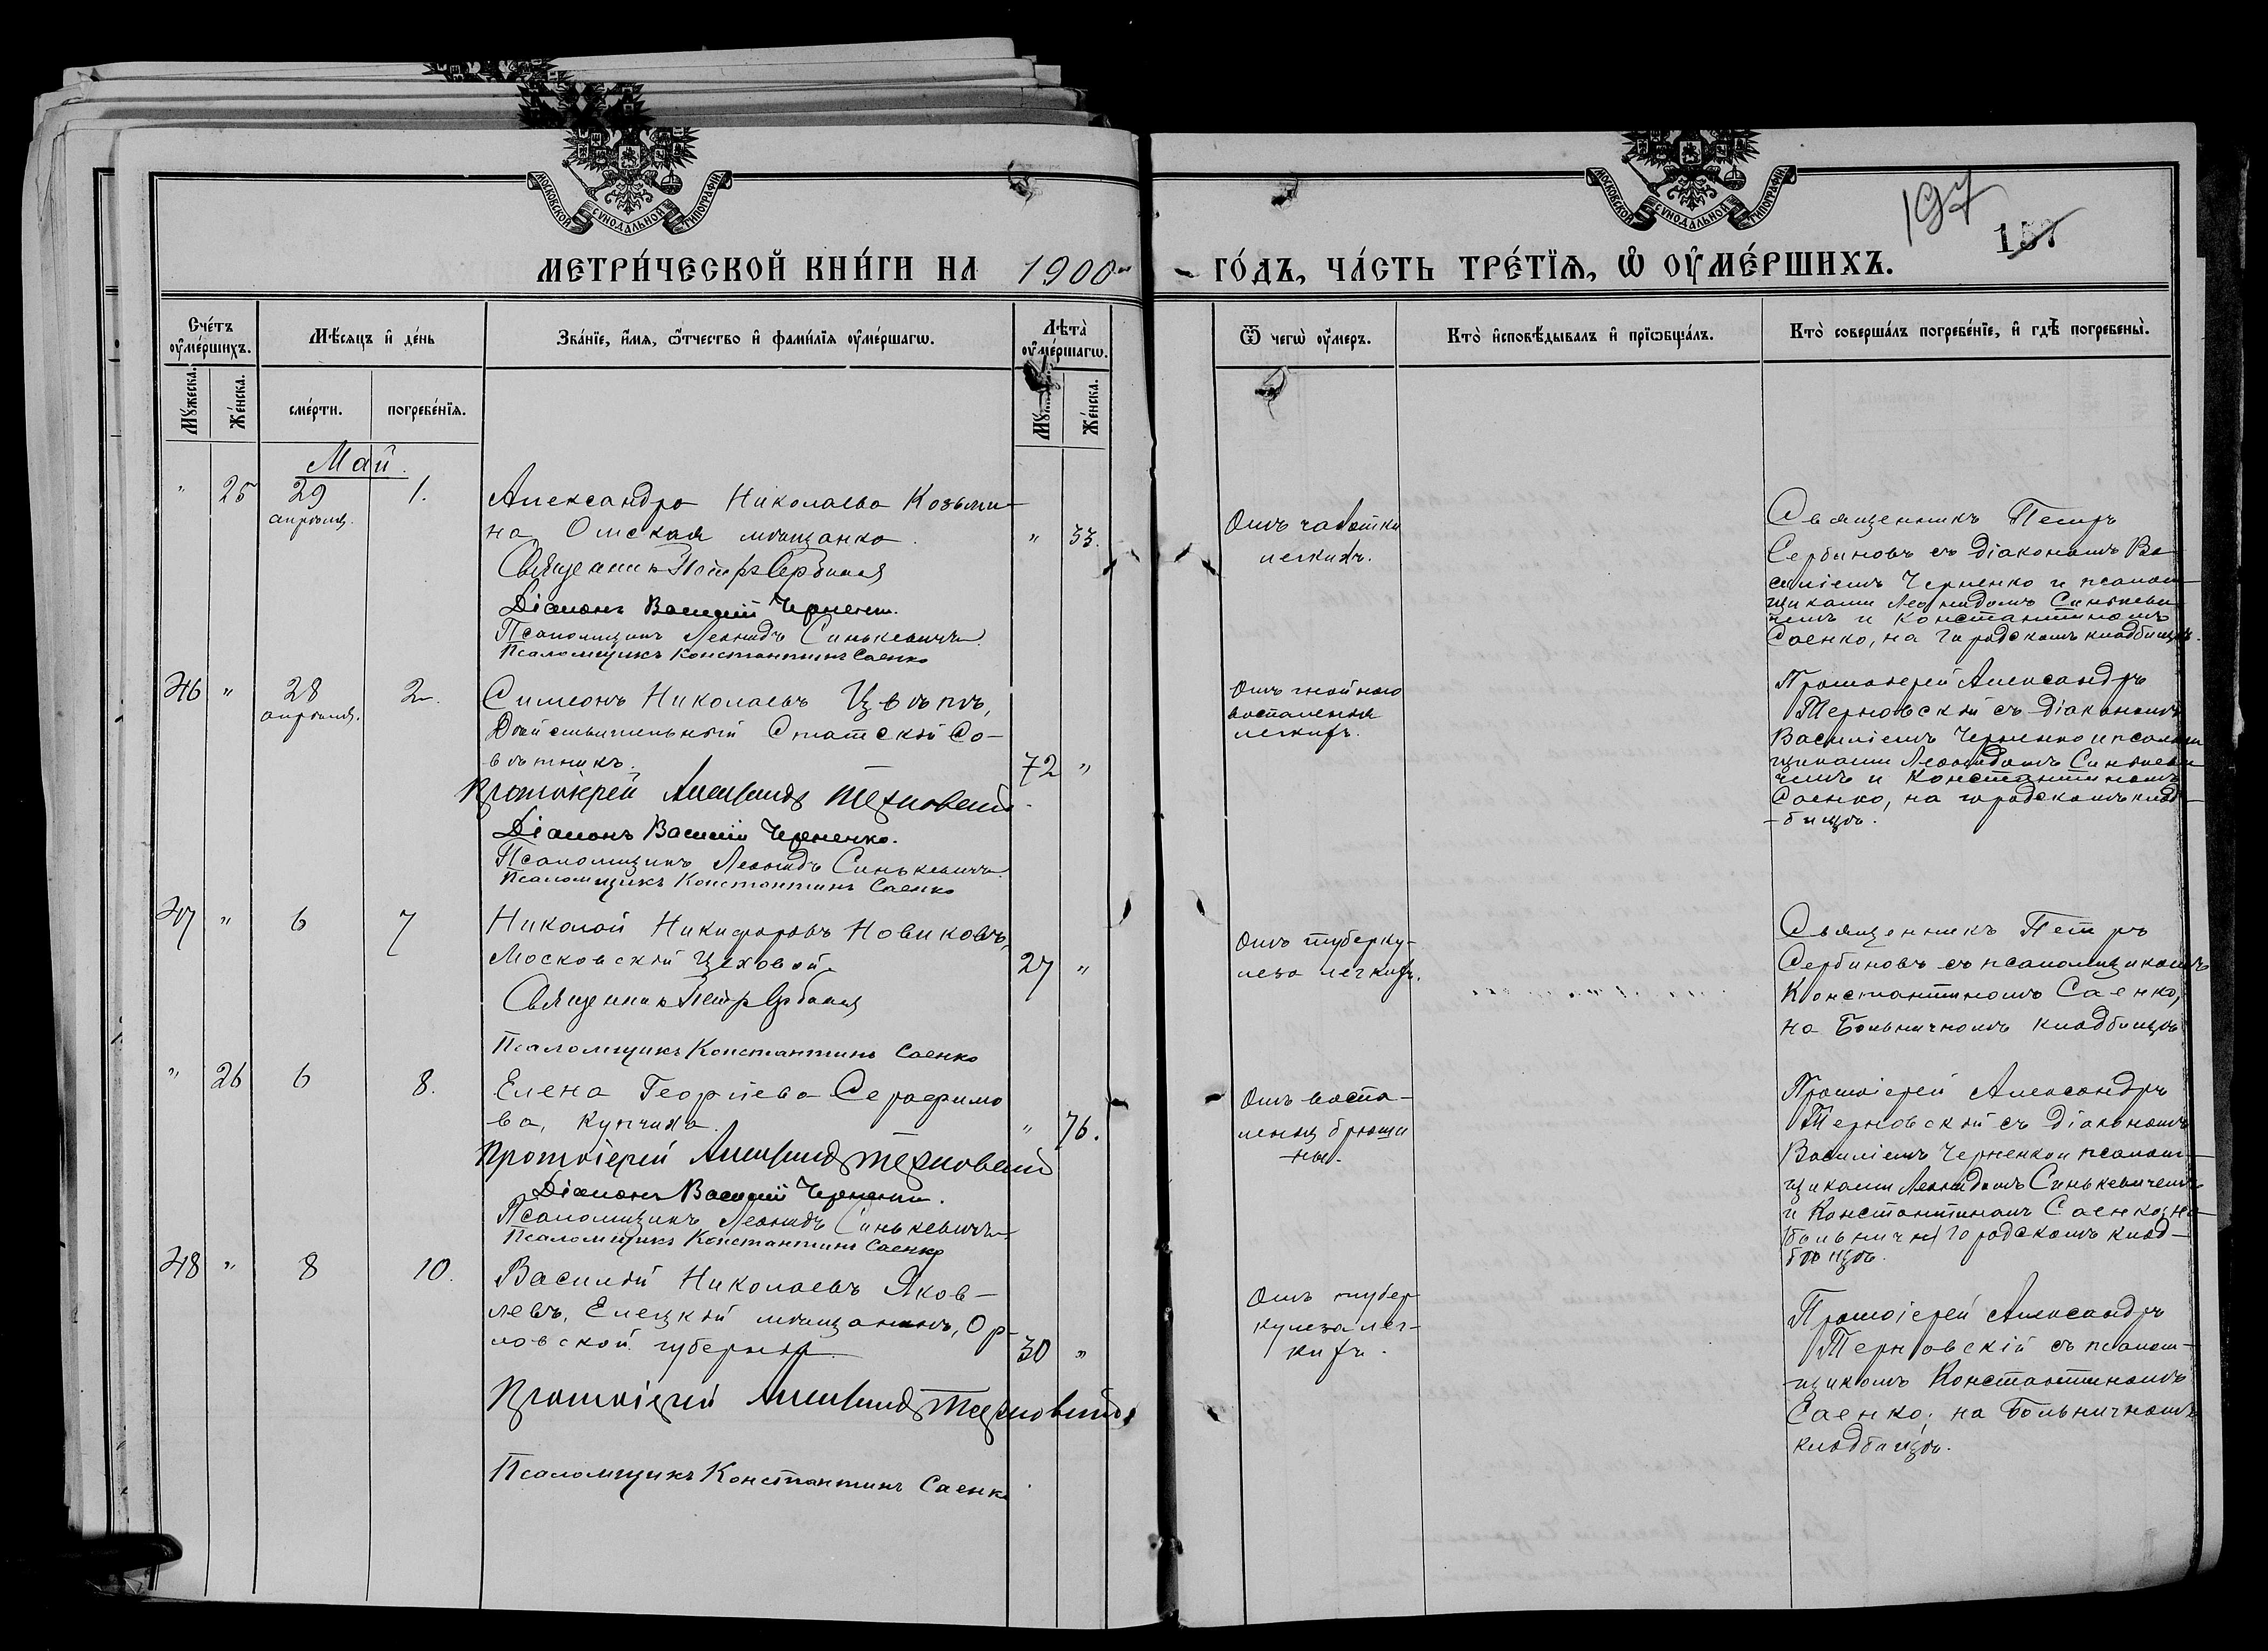 МОСКОВСКОЙ СѴНОДАЛЬНОЙ ТИПОГРАФІИ
МОСКОВСКОЙ СѴНОДАЛЬНОЙ ТИПОГРАФІИ
197
157
МЕТРИ́ЧЕСКОЙ КНИ́ГИ НА 1900 ГО́ДЪ, ЧА́СТЬ ТРЕ́ТЇѦ, Ѡ ОУМЕ́РШИХЪ.
Сче́тъ оуме́ршихъ.
Мѣ́сѧцъ и де́нь
Зва́нїе, и́мѧ, ѿтчество и фами́лїѧ оуме́ршагѡ.
Лѣта̀ оуме́ршагѡ.
Ѿ чегѡ̀ оу́меръ.
Кто̀ исповѣ́дывалъ и прїѡбща́лъ.
Кто̀ соверша́лъ погребе́нїе, и гдѣ̀ погребены̀.
Му́жеска.
Же́нска.
сме́рти.
погребе́нїѧ.
Же́нска.
Май.
" 25 29 апрѣля. 1.
Александра Николаева Козьми-
на Омская мѣщанка. " 33.
Священникъ Петръ Сербиновъ
Діаконъ Василій Черненко.
Псаломщикъ Леонидъ Синькевичъ
Псаломщикъ Константинъ Саенко
Отъ чахотки
легкихъ.
Священникъ Петръ
Сербиновъ съ діакономъ Ва-
силіемъ Черненко и псалом-
щиками Леонидомъ Синькеви-
чемъ и Константиномъ
Саенко, на городскомъ кладбищѣ.
46 " 28 апрѣля. 2.
Симеонъ Николаевъ Цвѣтъ,
Дѣйствительный Статскій Со-
вѣтникъ. 72 "
Протоіерей Александръ Терновскій.
Діаконъ Василій Черненко.
Псаломщикъ Леонидъ Синькевичъ
Псаломщикъ Константинъ Саенко
Отъ гнойнаго
воспаленія
легкихъ.
Протоіерей Александръ
Терновскій съ діакономъ
Василіемъ Черненко и псалом-
щиками Леонидомъ Синькеви-
чемъ и Константиномъ
Саенко, на городскомъ клад-
-бищѣ.
47 " 6 7
Николай Никифоровъ Новиковъ,
Московскій Цеховой. 27 "
Священникъ Петръ Сербиновъ
Псаломщикъ Константинъ Саенко
Отъ туберку-
леза легкихъ.
Священникъ Петръ
Сербиновъ съ псаломщикомъ
Константиномъ Саенко,
на Больничномъ кладбищѣ
" 26 6 8.
Елена Георгіева Серафимо
ва, купчиха. " 76.
Протоіерей Александръ Терновскій
Діаконъ Василій Черненко.
Псаломщикъ Леонидъ Синькевичъ
Псаломщикъ Константинъ Саенко
Отъ воспа-
ленія брюши
ны.
Протоіерей Александръ
Терновскій съ діакономъ
Василіемъ Черненко и псалом-
щиками Леонидомъ Синькевичемъ
и Константиномъ Саенко, на
(больничн) Городскомъ клад-
бищѣ.
48 " 8 10.
Василій Николаевъ Яков-
левъ, Елецкій мѣщанинъ, Ор-
ловской губерніи. 30 "
Протоіерей Александръ Терновскій.
Псаломщикъ Константинъ Саенко
Отъ тубер
кулеза лег-
кихъ.
Протоіерей Александръ
Терновскій съ псалом-
щикомъ Константиномъ
Саенко, на Больничномъ
кладбищѣ.